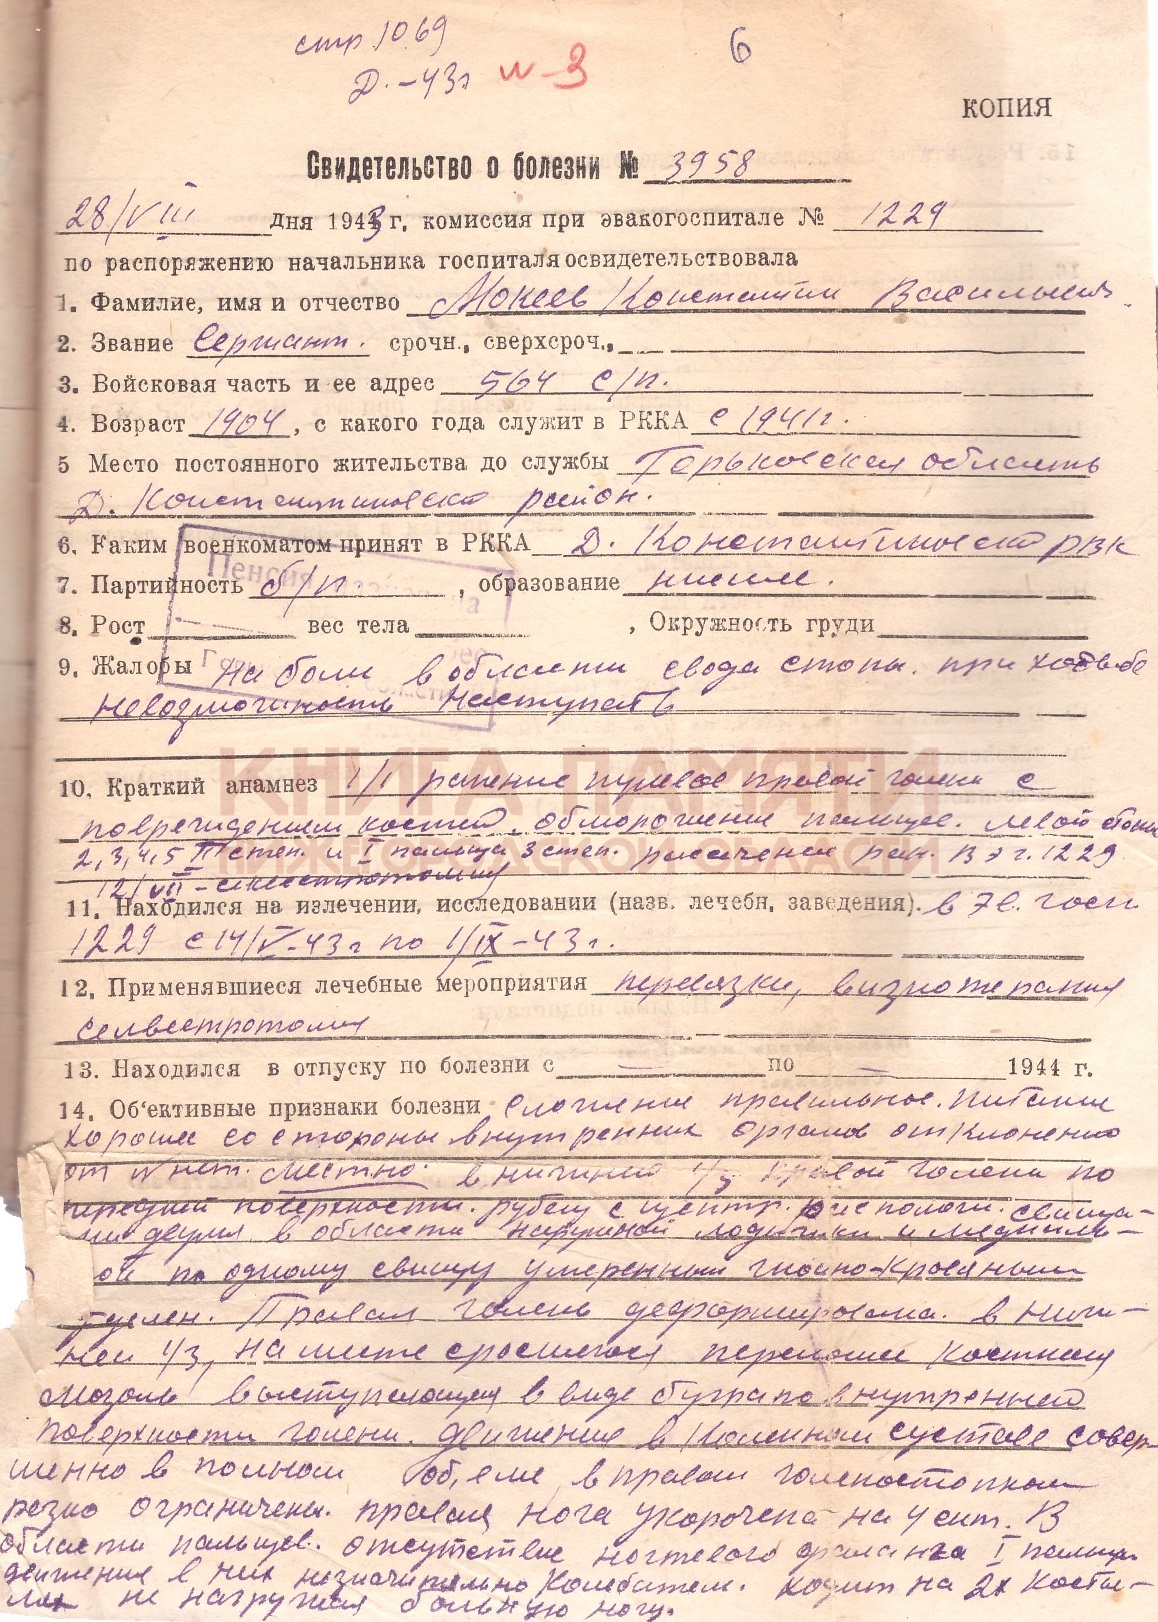 стр. 1069
Д. -43г
N-3
6
КОПИЯ
Свидетельство о болезни № 3958
28/VIII дня 1943 г. комиссия при эвакогоспитале № 1229
по распоряжению начальника госпиталя освидетельствовала
1. Фамилие, имя и отчество Мокеев Константин Васильевич
2. Звание Сержант. срочн., сверхсроч.,
3. Войсковая часть и ее адрес 564 с/п.
4. Возраст 1904, с какого года служит в РККА с 1941г.
5 Место постоянного жительства до службы Горьковская область
Д. Константиновский район.
6. Каким военкоматом принят в РККА Д. Константиновский РВК
7. Партийность б/п , образование низшее.
8. Рост вес тела , Окружность груди
Пенсия
9. Жалобы На боли в области свода стопы. при ходьбе
невозможность наступать
КНИГА ПАМЯТИ
10. Краткий анамнез ранение пулевое правой голени с
повреждением костей, обморожение пальцев. левой стопы
2, 3, 4, 5 III степ. и I пальца 3 степ. рассечение ран. В эг. 1229
12/VII - секвестротомия
11. Находился на излечении, исследовании (назв. лечебн, заведения). в Эв. госп
1229 с 14/V-43г по 1/IX-43г.
12. Применявшиеся лечебные мероприятия перевязки, физиотерапия
секвестротомия
13. Находился в отпуску по болезни с — по — 1944 г.
14. Об'ективные признаки болезни Сложение правильное. питание
хорошее со стороны внутренних органов отклонений
от N нет. Местно: в нижней 1/3 правой голени по
передней поверхности. рубец с центр. располож. свища-
ми двумя в области наружной лодыжки и медиаль-
ой по одному свищу умеренным гнойно-кровяным
тделен. Правая голень деформирована. в ниж-
ней 1/3, на месте сросшегося перелома костная
мозоль выступающая в виде бугра по внутренней
поверхности голени. движения в коленном суставе совер-
шенно в полном об'еме, в правом голеностопном
резко ограничены. правая нога укорочена на 4 сит. В
области пальцев. отсутствие ногтевого фаланга I пальца.
движения в них незначительно колебатем. ходит на 2х косты-
лях не нагружая больную ногу.